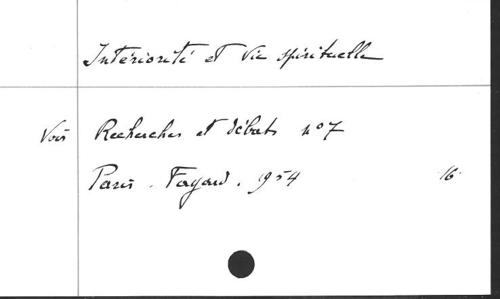 Intériorité et Vie spirituelle
Voir Recherches et débats n°7
Paris. Fayard. 1954 16